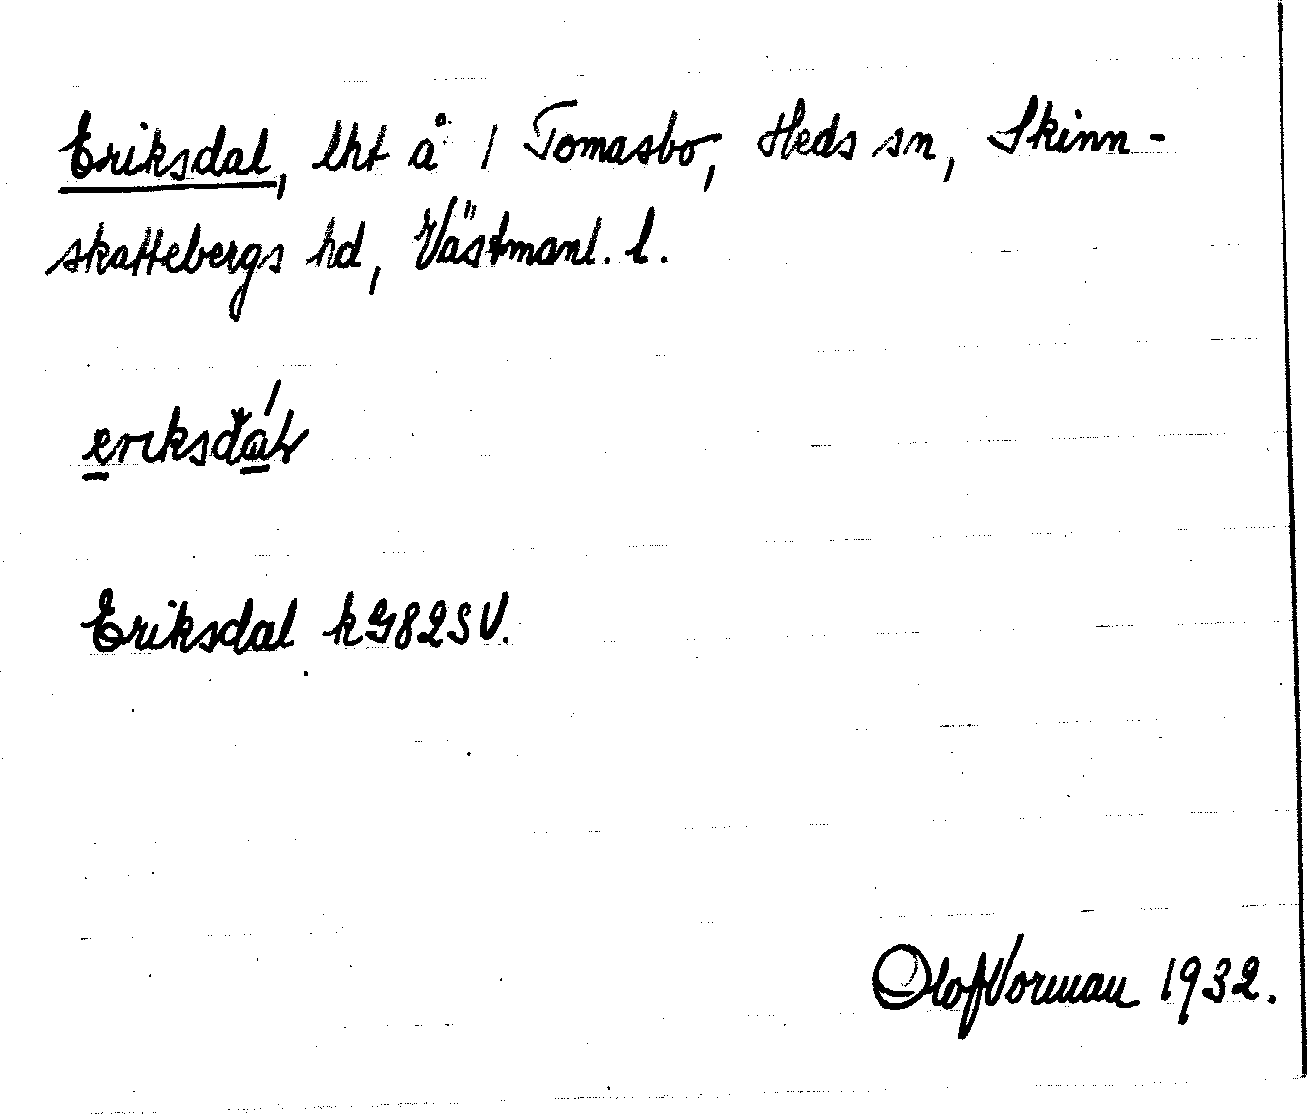 Eriksdal, lht å 1 Tomasbo, Heds sn, Skinn-
skattebergs hd, Västmanl. l.
eriksdál
Eriksdal kG82SV.
Olof Vorman 1932.